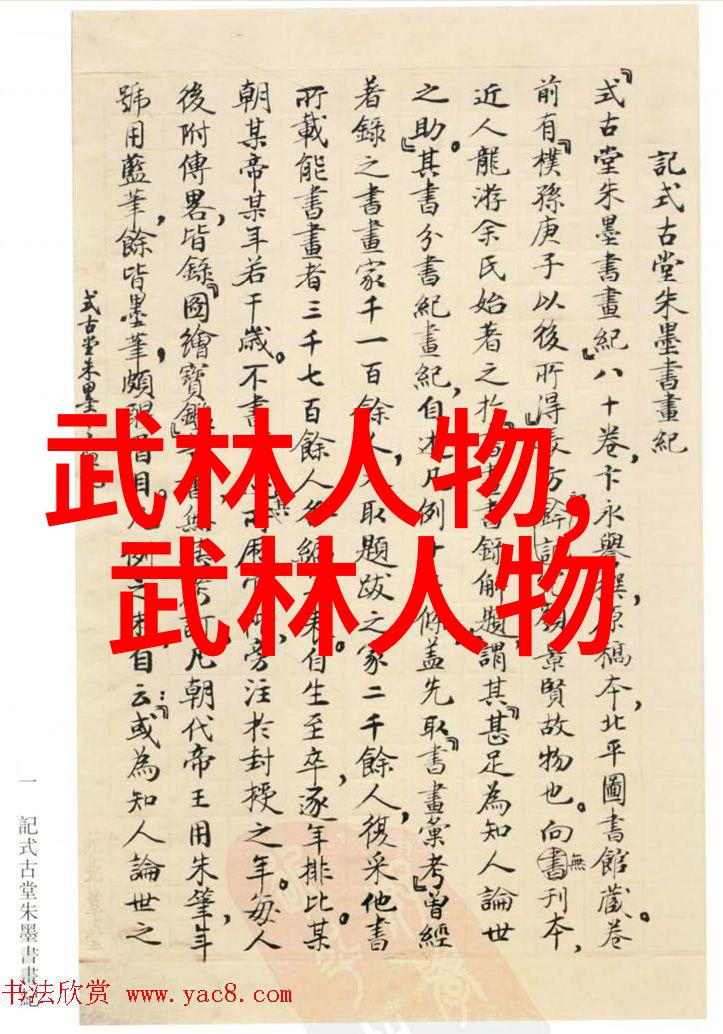 記式古堂朱墨書畫紀
『式古堂朱墨書畫紀』八十卷，卞永譽撰原稿本，北平圖書館藏。卷
前有『樸孫庚子以後所得
景賢故物也。向無刊本，
近人龍游余氏始著之於
書解題，謂其『甚足為知人論世
之助』。其書分書紀畫紀，自述凡例十
條蓋先取『書畫彙考』曾經
著錄之書畫家千一百餘人，
取題跋之家二千餘人，復采他書
所載能書畫者三千七百餘人
表。自生至卒，逐年排比。某
朝某帝某年若干歲。不書
旁注於封授之年。每人
後附傳畧，皆錄『圖繪寶鑑』
凡朝代帝王用朱筆，年
號用藍筆，餘皆墨筆，頗醒眉目。
例之末自云：『或為知人論世之
式古堂朱墨
武林人物,
武林人物
一 記式古堂朱墨書畫紀
书法欣赏 www.yac8.com